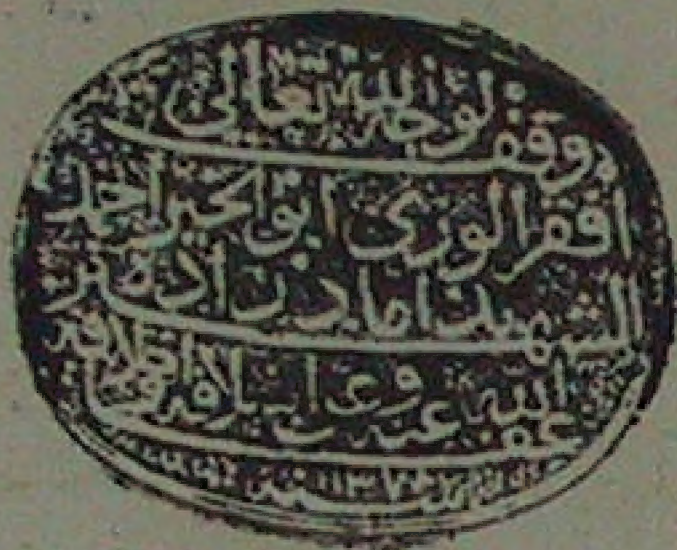 وقف لوجه الله تعالى
افقر الورى ابو الخير احمد
الشهير بداماد زاده
عفى الله عنه وعن اسلافه
سنه